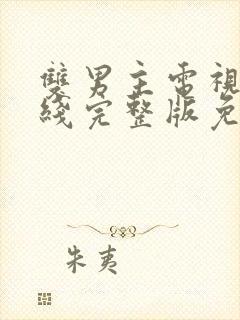 雙男主電視
綫完整版免
朱夷